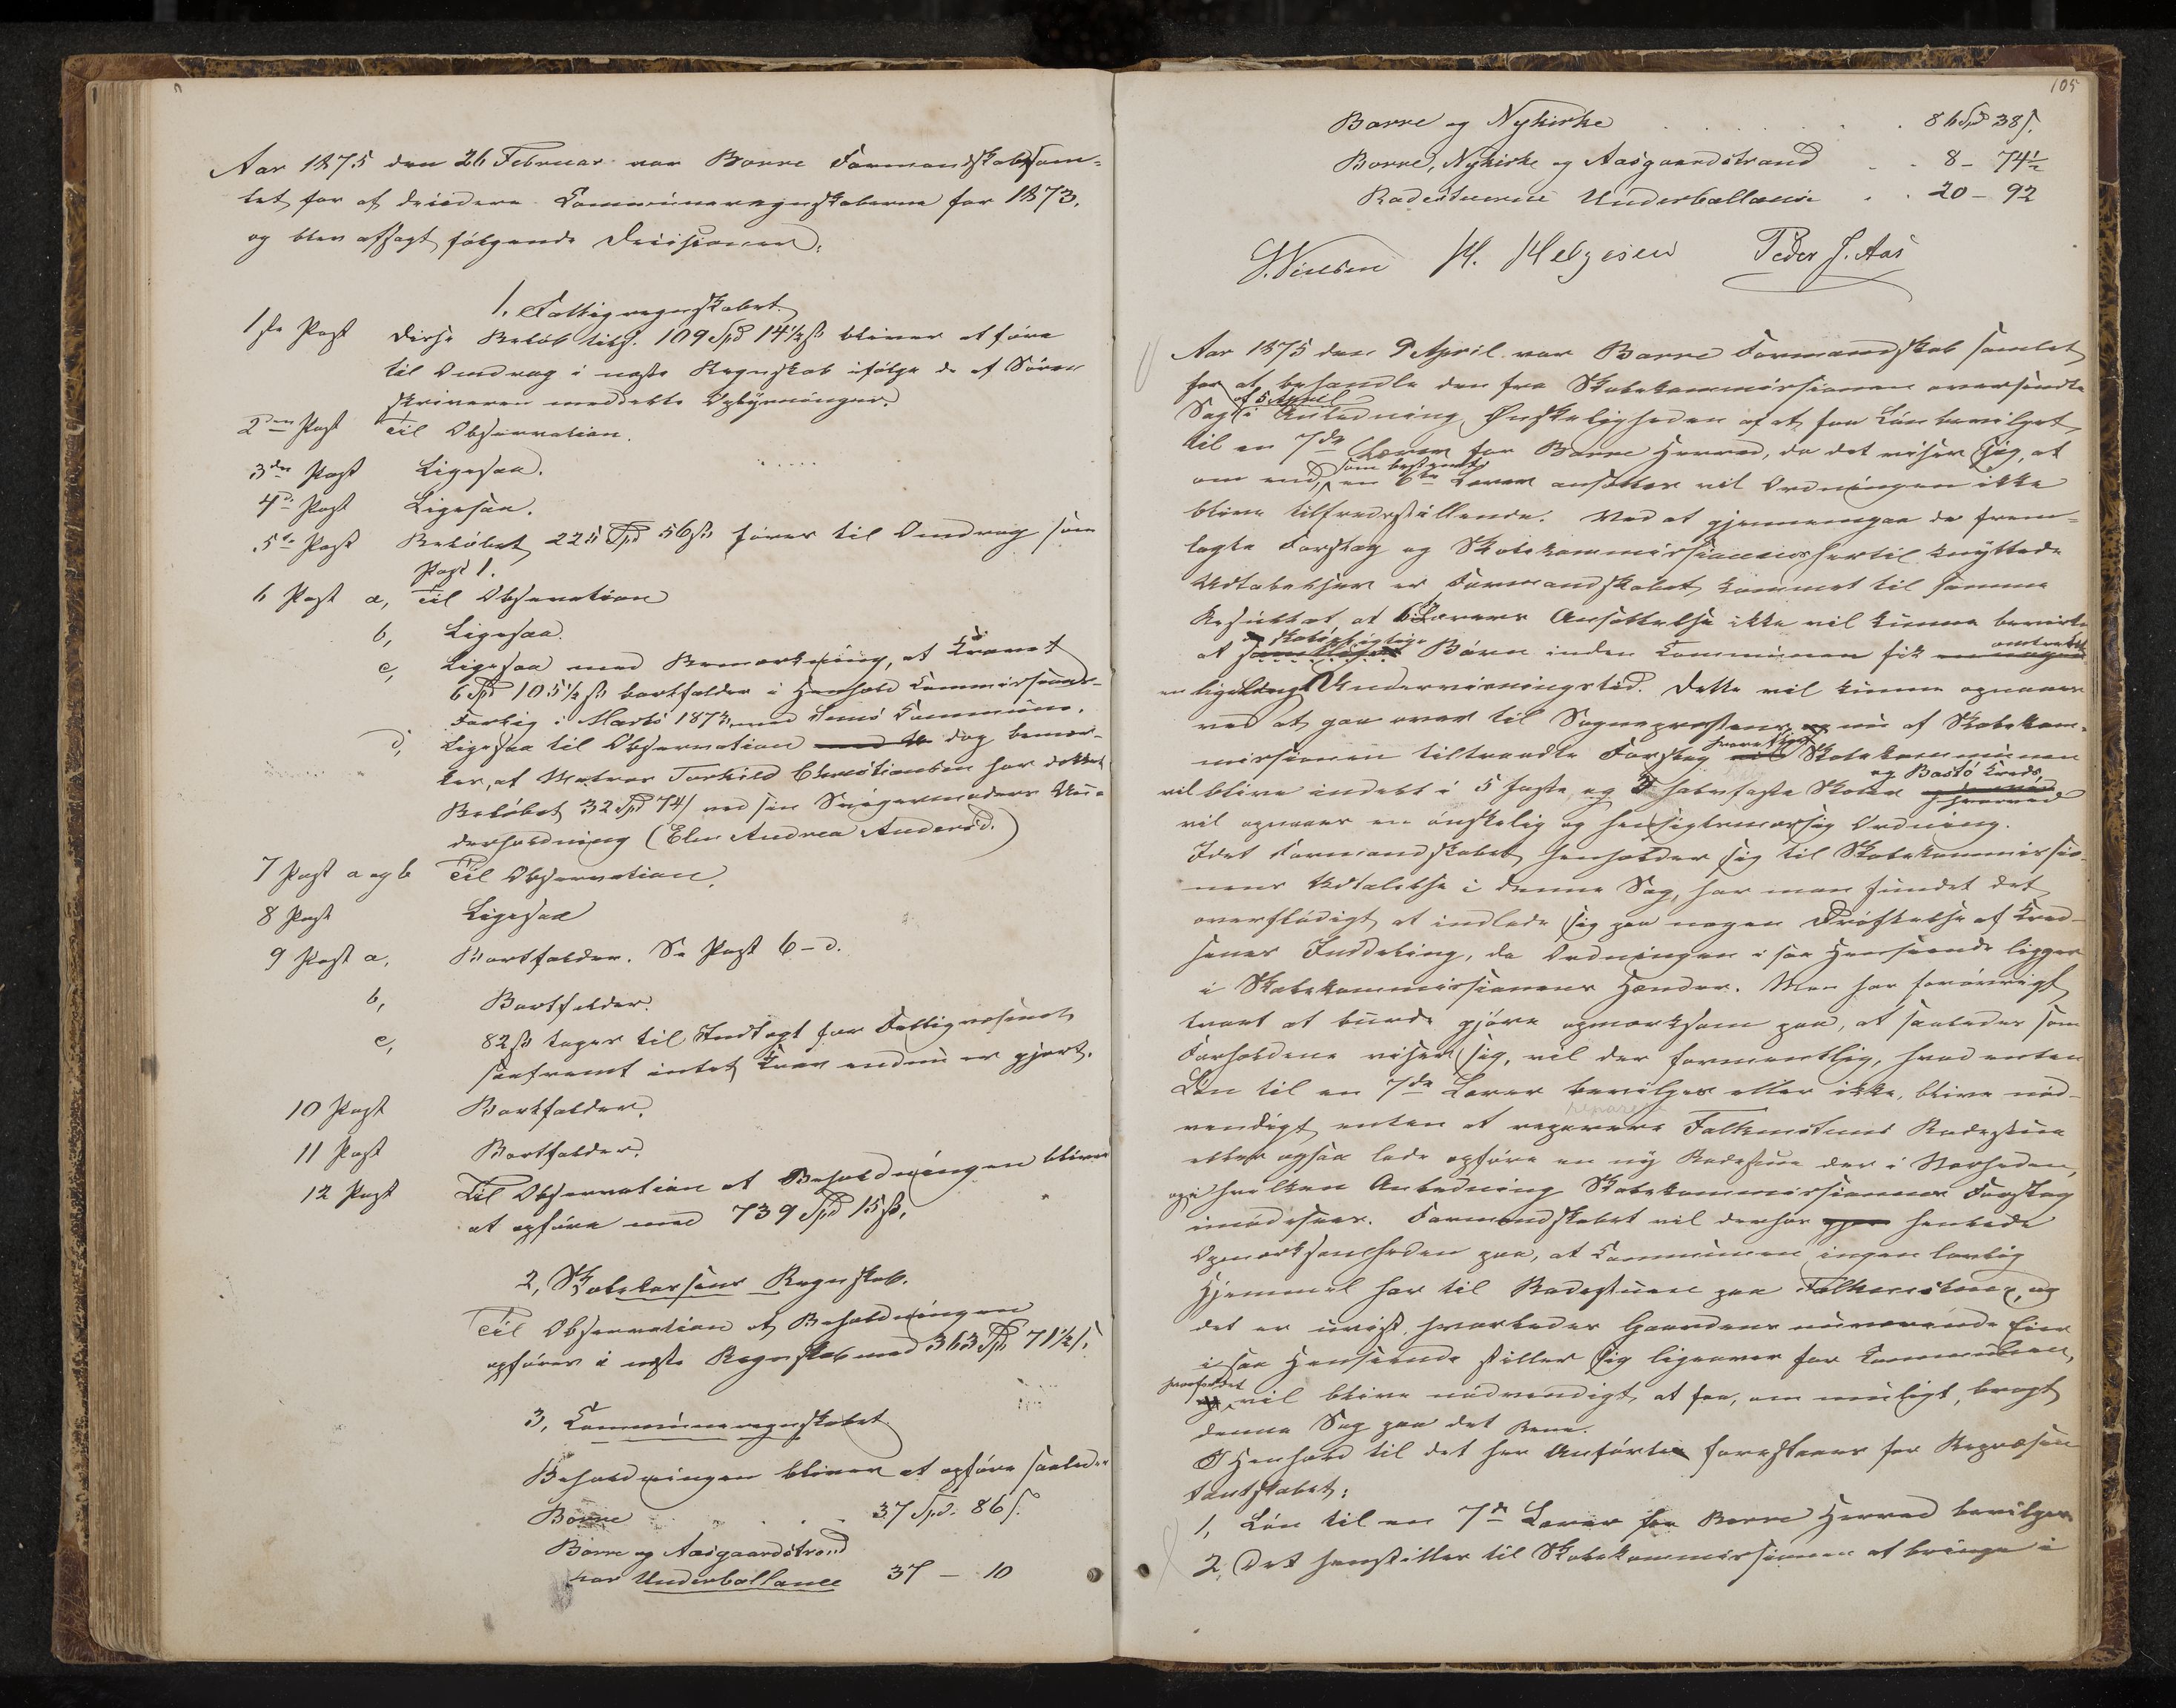 Aar 1875 den 26 Februar var Borre Formandskab sam-
let for at decidere Communeregnskaberne for 1873,
og blev afsagt følgende Decisioner:
1, Fattigregnskabet.
1ste Post Disse Beløb tils. 109 Spd 14½ ß bliver at føre
til Omdrag i næste Regnskab ifølge de af Soren
skriveren meddelte Oplysninger.
2den Post Til Observation.
3die Post Ligesaa.
4de Post Ligesaa.
5te Post Beløbet 225 Spd 56 ß føres til Omdrag som
Post 1.
6 Post a, Til Observation
b, Ligesaa.
c, Ligesaa med Bemærkning, at Kravet
6 Spd 105½ ß bortfalder i Henhold Commissions-
Forlig i Marts 1873 med Sems Commune.
d, Ligesaa til Observation med dog bemær-
kes, at Matros Torkild Christiansen har dækket
Beløbet 32 Spd 74 ß ved sin Svigermoders Un-
derholdning (Elen Andrea Andersd.)
7 Post a og b Til Observation.
8 Post Ligesaa
9 Post a, Bortfalder. Se Post 6-d.
b, Bortfalder.
c, 82 ß tages til Indtægt for Fattigvæsenet
saafremt intet Krav endnu er gjort.
10 Post Bortfalder.
11 Post Bortfalder.
12 Post Til Observation at Beholdningen bliver
at opføre med 739 Spd 15 ß.
2, Skolekassens Regnskab.
Til Observation at Beholdningen
opføres i næste Regnskab med 363 Spd 71½ ß.
3, Communeregnskabet
Beholdningen bliver at opføre saaledes
Borre . . . 37 Spd. 86 ß.
Borre og Aasgaardstrand
har Underballance 37 - 10
105
Borre og Nykirke . . . . . . 86 Spd 38 ß.
Borre, Nykirke og Aasgaardstrand . . 8 - 74½
Radestuernes Underballance . . 20 - 92
H. Helgesen Peder J. Aas
Aar 1875 den 9 April var Borre Formandskab samlet
for at behandle den fra Skolekommissionen oversendte
af 5 April
Sag i Anledning Ønskeligheden af at faa Løn bevilget
til en 7de Lærer for Borre Herred, da det viser sig, at
som bestemt
om end en 6te Lærer ansættes vil Ordningen ikke
blive tilfredsstillende. Ved at gjennemgaa de frem-
lagte Forslag og Skolekommissionens hertil knyttede
Udtalelser er Formandskabet kommet til samme
Resultat at 6 Læreres Ansættelse ikke vil kunne bevirke
skolepligtige
at Børn inden Communen fik omtrent
en ligelang Undervisningstid. Dette vil kunne opnaaes
ved at gaa over til Sognepræstens og nu af Skolekom-
missionen tiltraadte Forslag hvorefter Skolekommunen
og Bastø Kreds,
vil blive indelt i 5 faste og 3 halvfaste Skoler hvorved
vil opnaaes en ønskelig og hensigtsmæssig Ordning.
Idet Formandskabet henholder sig til Skolekommissio-
nens Udtalelse i denne Sag, har man fundet det
overflødigt at indlade sig paa nogen Drøftelse af Kred-
senes Inddeling, da Ordningen i saa Henseende ligger
i Skolekommissionens Hænder. Man har forøvrigt
troet at burde gjøre opmærksom paa, at saaledes som
Forholdene viser sig, vil der formentlig, hvad enten
Løn til en 7de Lærer bevilges eller ikke, blive nød-
reparere
vendigt enten at reparere Falkenstens Radestue
eller ogsaa lade opføre en ny Radestue der i Nærheden,
og i hvilken Anledning Skolekommissionens Forslag
imødesees. Formandskabet vil derhos gjøre henlede
Opmærksomheden paa, at Communen ingen lovlig
Hjemmel har til Radestuen paa Falkensten, og
det er uvist, hvorledes Gaardens nuværende Eier
i saa Henseende stiller sig ligeover for Kommunen,
hvorfor det
og vil blive nødvendigt, at faa, om muligt, bragt
denne Sag paa det Rene.
I Henhold til det her Anførte foreslaaes for Repræsen
tantskabet:
1, Løn til en 7de Lærer for Borre Herred bevilges
2, Det henstilles til Skolekommissionen at bringe i